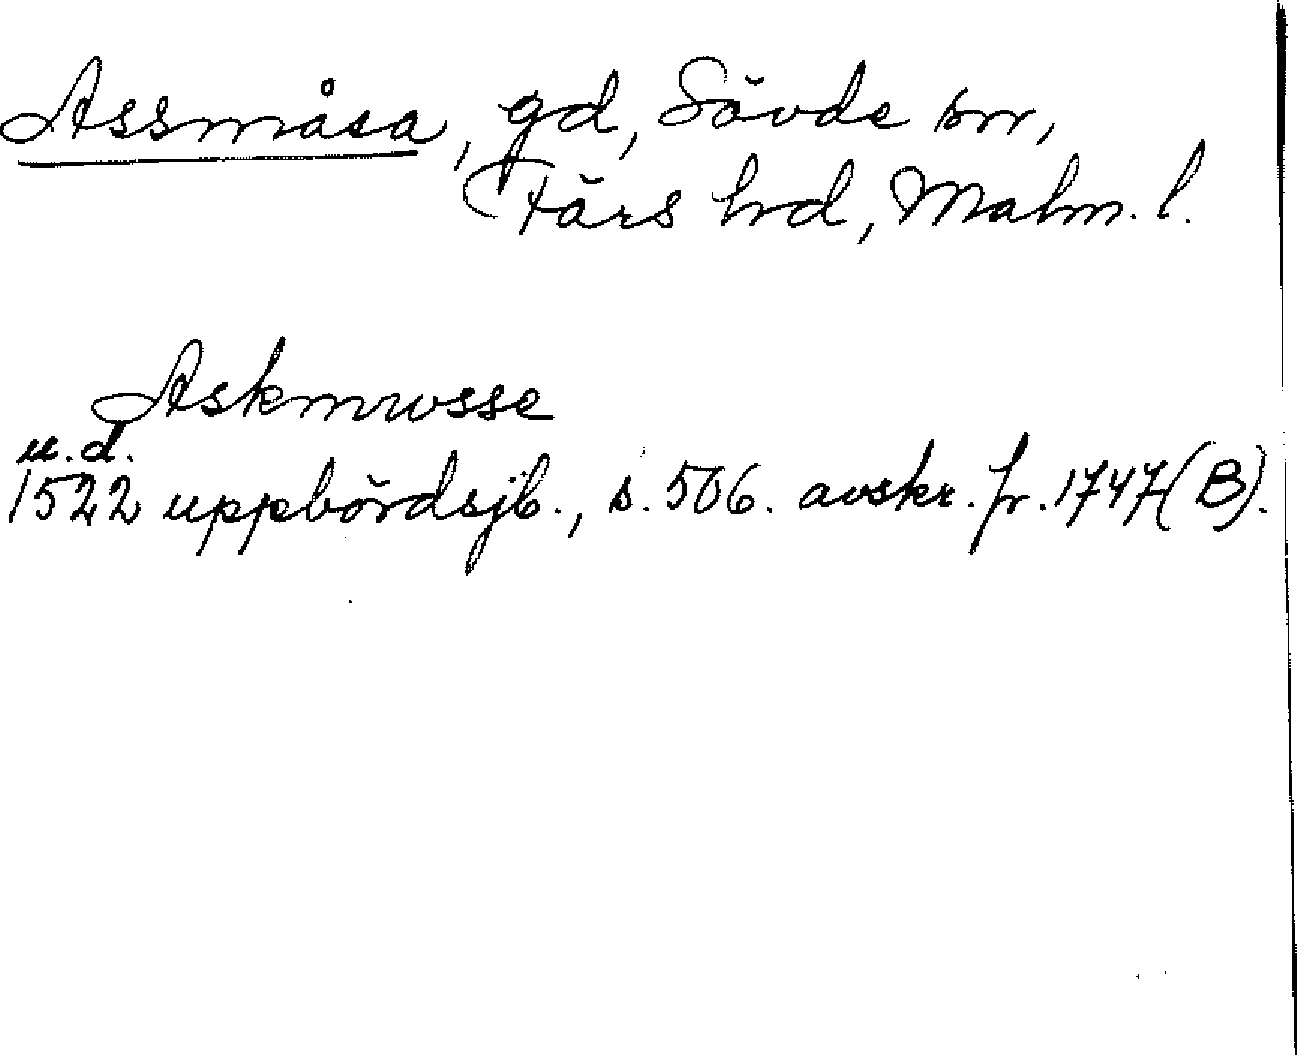 Assmåsa, gd, Sövde sn,
Färs hd, Malm. l.
Askmwsse
u.d.
1522 uppbördsjb., s. 506. avskr. fr. 1747(B).